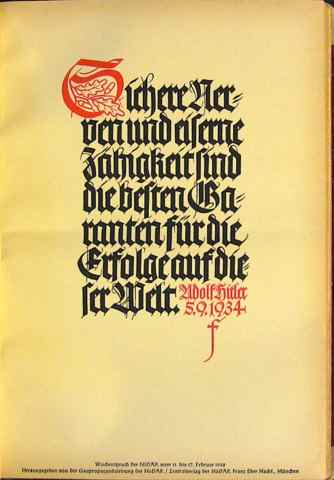 Sichere Ner-
ven und eiserne
Zähigkeit sind
die besten Ga-
ranten für die
Erfolge auf die
ser Welt. Adolf Hitler
5.9.1934
Wochenspruch der NSDAP. vom 11. bis 17. Februar
Herausgegeben von der Gaupropagandaleitung der NSDAP. / Zentralverlag der NSDAP. Franz Eher Nachf., München